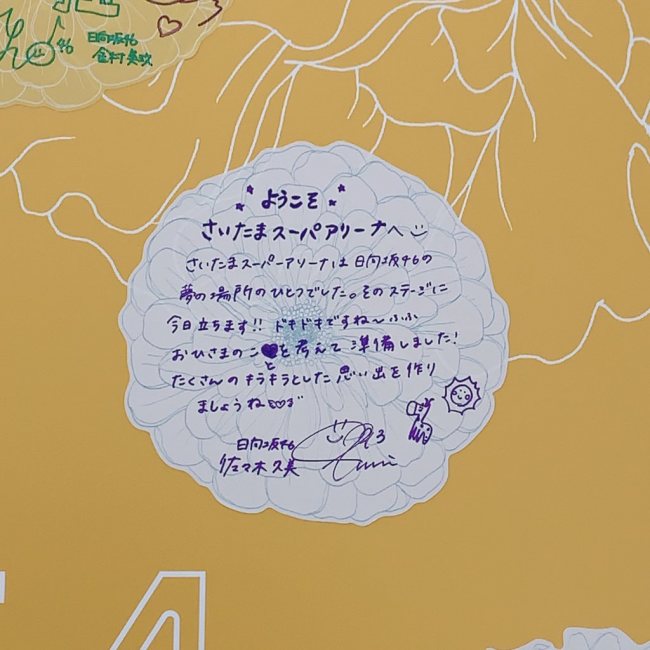 46
日向坂46
金村美玖
ようこそ
さいたまスーパアリーナへ
さいたまスーパーアリーナは日向坂46の
夢の場所のひとつでした。そのステージに
今日立ちます!! ドキドキですね〜ふふ
おひさまのこ を考えて準備しました!
と
たくさんのキラキラとした思い出を作り
ましょうね
日向坂46
佐々木久美
4